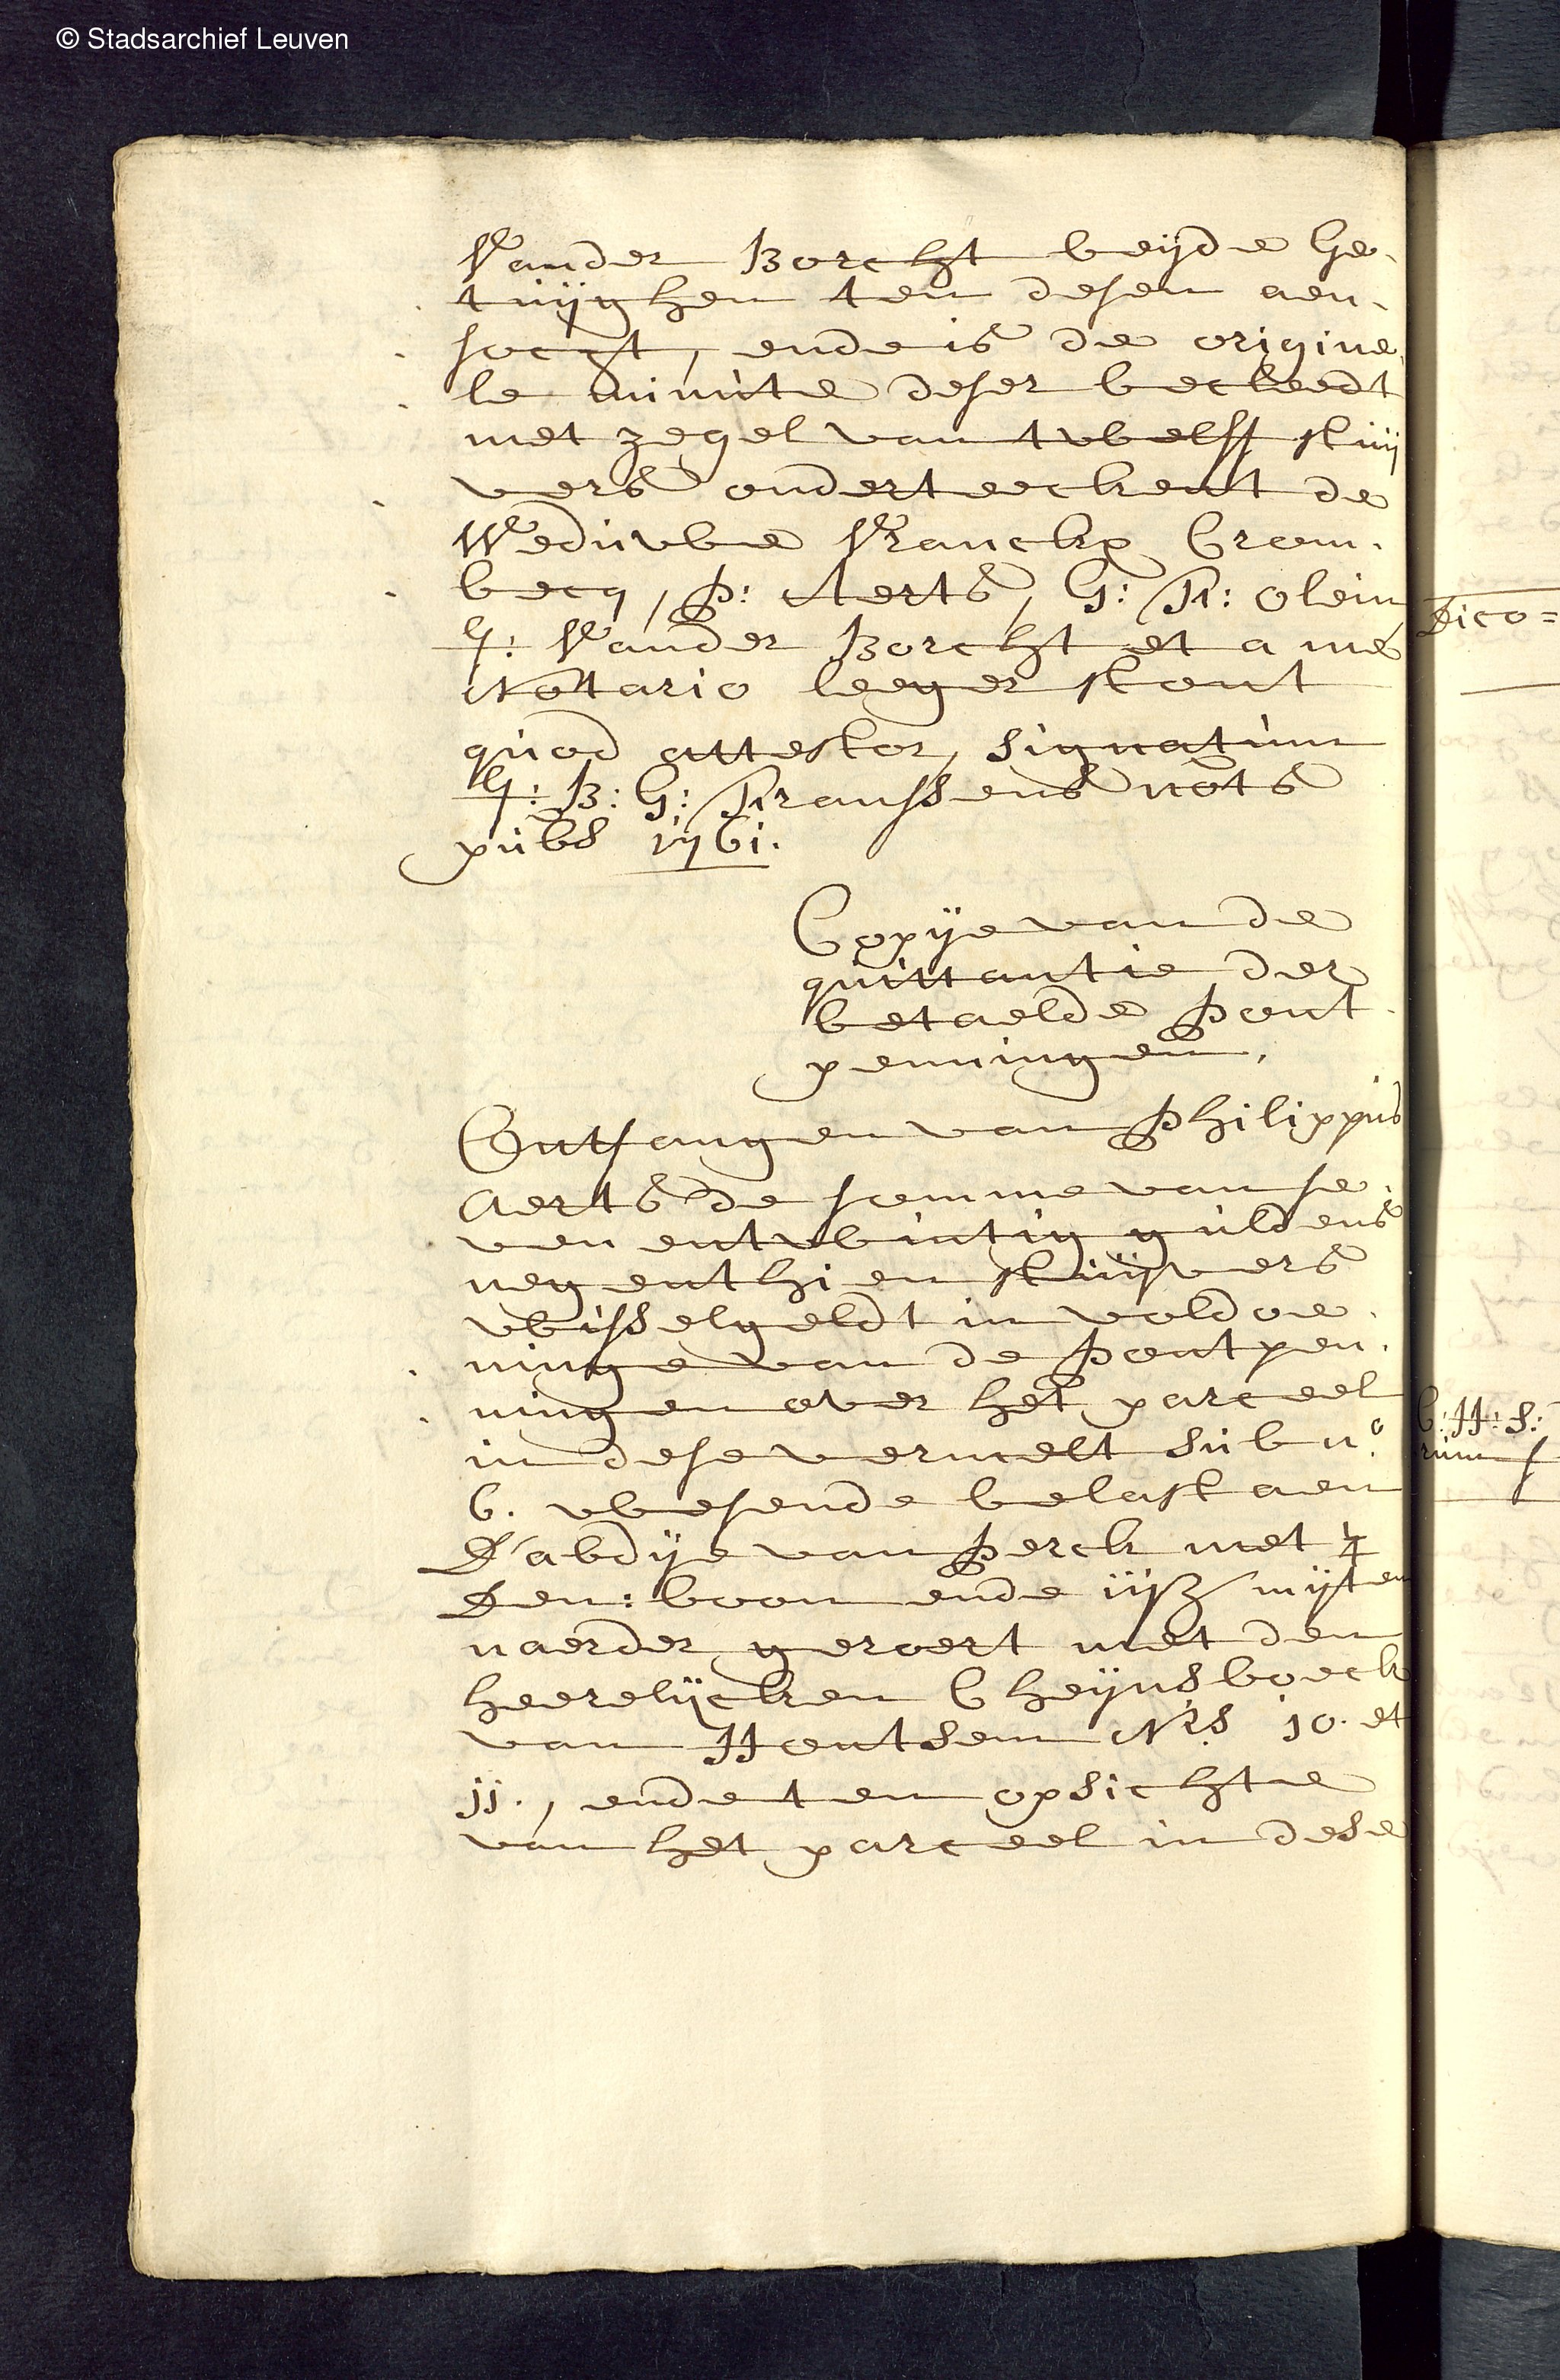 © Stadsarchief Leuven
Vander Borcht beijde Ge-
tuijghen ten desen aen-
socht, ende is de origine-
le minute deser becleedt
met zegel van twelff stuij
vers onderteeckent de
Weduwe Vranckx Crom-
becq, P: Aerts, G: F: Olein
G: Vander Borcht et a me
Notario leeger stont
quod attestor, signatum
G: B: G: Franssens nots
pubs 1761.
Copije van de
quittantie der
betaelde Pont-
penningen.
Ontfangen van Philippus
Aerts de somme van se-
ven entwintig guldens
negenthien stuijvers
wisselgeldt in voldoe-
ninge van de Pontpen-
ningen over het parceel
in dese vermelt sub n.o
6. wesende belast aen
D'abdije van Perck met ¼
Den: Loon ende mijten
naerder geroert met den
heerelijcken Cheijnsboeck
van Hontsem Nrs 10. et
11., ende ten opsichte
van het parceel in dese
Dico=
C: H: S: